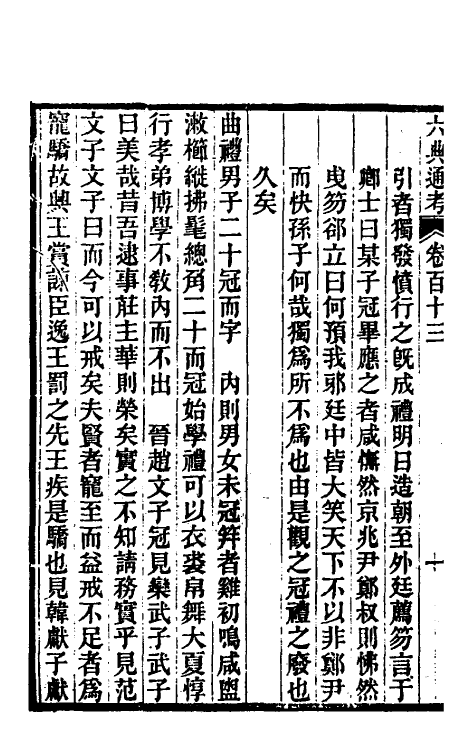 六典通考 卷百十三 十
引者獨發憤行之旣成禮明日造朝至外廷薦笏言于
鄉士曰某子冠畢應之者咸憮然京兆尹鄭叔則怫然
曳笏郤立曰何預我耶廷中皆大笑天下不以非鄭尹
而快孫子何哉獨爲所不爲也由是觀之冠禮之廢也
久矣
曲禮男子二十冠而字 內則男女未冠笄者雞初鳴咸盥
漱櫛縰拂髦總角二十而冠始學禮可以衣裘帛舞大夏惇
行孝弟博學不敎內而不出 晉趙文子冠見欒武子武子
曰美哉昔吾逮事莊主華則榮矣實之不知請務實乎見范
文子文子曰而今可以戒矣夫賢者寵至而益戒不足者爲
寵驕故興王賞諫臣逸王罰之先王疾是驕也見韓獻子獻